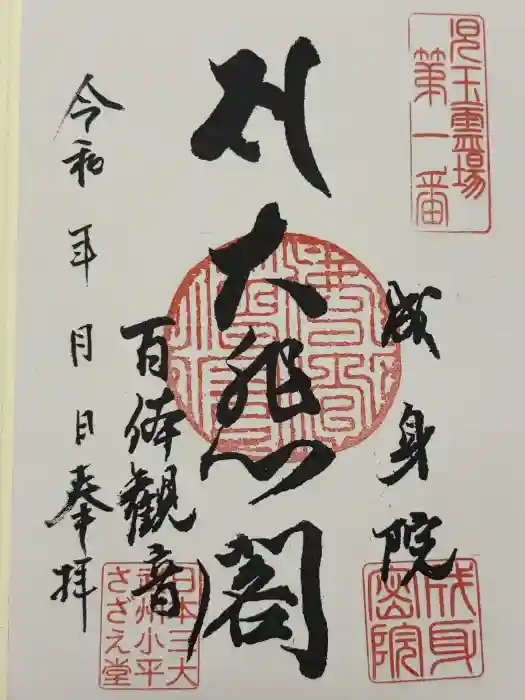 児玉霊場
第一番
成身院
成身
密院
𑖭
大悲閣
百体観音
日本三大
武州小平
さざえ堂
令和 年 月 日 奉拝